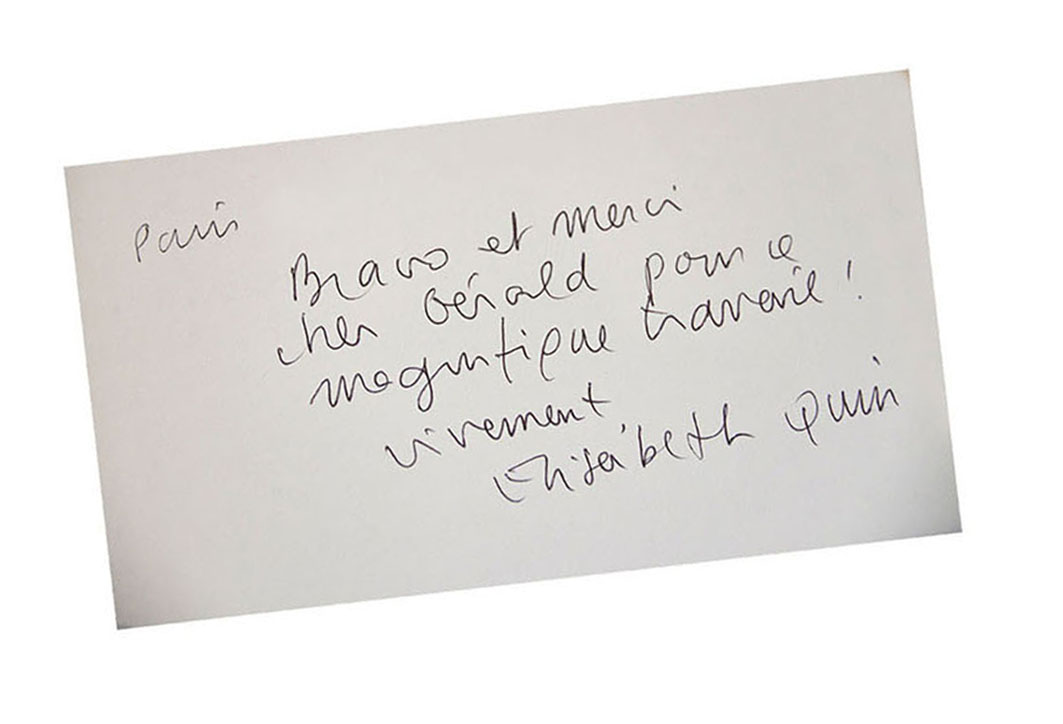 Paris
Bravo et merci
cher Gérald pour ce
magnifique travail !
vivement
Elisabeth Quin